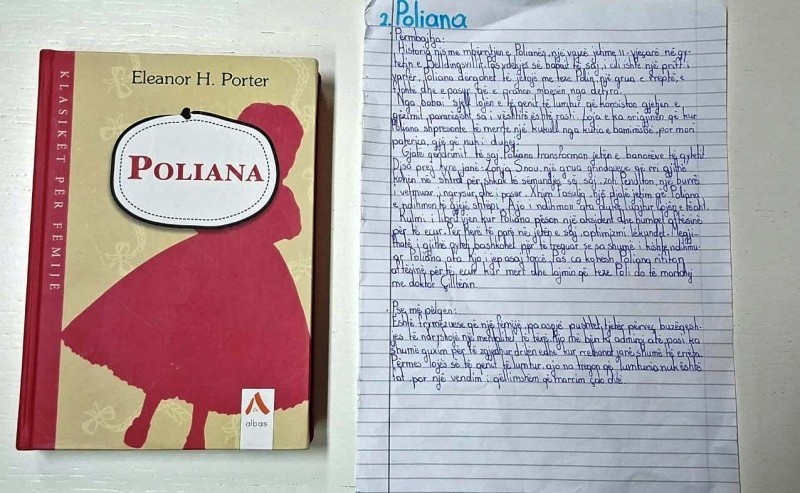 KLASIKËT PËR FËMIJË
Eleanor H. Porter
POLIANA
albas
2. Poliana
Përmbajtja:
Historia nis me mbërritjen e Polianës, një vajzë jetime 11-vjeçare në qy-
tetin e Beldingsvillit, pas vdekjes së babait të saj, i cili ishte një prift i
varfër. Poliana dërgohet të jetojë me tezen Polin, një grua e rreptë, e
ftohtë dhe e pasur që e pranon mbesën nga detyra.
Nga babai sjell lojën e të qenit të lumtur që konsiston gjetjen e
gëzimit, pavarësisht sa i vështirë është rasti. Loja e ka origjinën që kur
Poliana shpresonte të merrte një kukull nga kutia e bamirësisë, por mori
paterica, gjë që nuk i duhej.
Gjatë qëndrimit të saj, Poliana transformon jetën e banorëve të qytetit.
Disa prej tyre janë: Zonja Snou, një grua grindavece që rri gjithë
kohën në shtrat për shkak të sëmundjes së saj, zoti Pendlton, një burrë
i vetmuar, ngrysur dhe i pasur, Xhimi
një djalë jetim që Poliana
e ndihmon të gjejë shtëpi. Ajo i ndihmon ata duke luajtur lojën e tatit.
Kulmi i librit vjen kur Poliana pëson një aksident dhe humbet aftësinë
për të ecur. Për herë të parë në jetën e saj, optimizmi lëkundet. Megji-
thatë, i gjithë qyteti bashkohet për të treguar se sa shumë i kishte ndihmu-
ar Poliana ata. Kjo i jep asaj forcë. Pas ca kohësh, Poliana rifiton
aftësinë për të ecur kur merr dhe lajmin që teze Poli do të martohej
me doktor Çilltenin.
Pse më pëlqen:
Është frymëzuese që një fëmijë, pa asnjë pushtet tjetër përveç buzëqesh-
jes të ndryshojë një mentalitet të tërë. Ajo më bën ta admiroj atë, pasi ka
shumë guxim për të zgjedhur dritën edhe kur rrethanat janë shumë të errëta.
Përmes lojës së të qenit të lumtur, ajo na tregon që lumturia nuk është
fat, por një vendim i qëllimshëm që marrim çdo ditë.